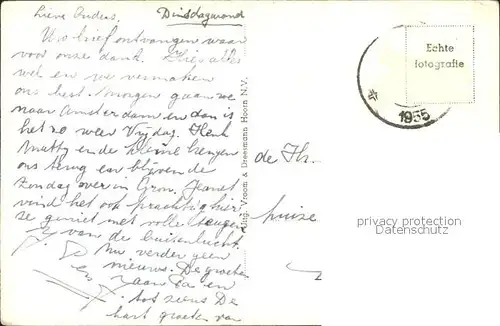 Lieve Ouders. Dinsdagavond
Uw brief ontvangen waar
voor onze dank. Hier alles
wel en we vermaken
ons best. Morgen gaan we
naar Amsterdam en dan is
het zo weer Vrijdag. Henk
Matty en de kleine komen
ons terug en blijven de
Zondag over in Gron. Jeanet
vind het ook prachtig hier
ze geniet met volle teugen
van de buitenlucht.
Nu verder geen
nieuws. De groeten
en
tot ziens De
hart. groeten van
Uitg. Vroom & Dreesmann Hoorn N.V.
de
huize
Echte
fotografie
1955
privacy protection